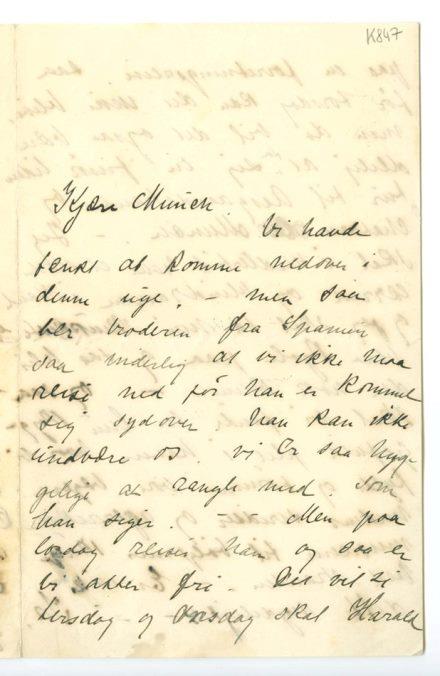 K847
Kjære Munch.
Vi havde
tenkt at komme nedover i
denne uge, – men saa
ber broderen fra Spanien
saa inderlig at vi ikke maa
reise ned før han er kommet
sig sydover han kan ikke
undvære os. vi er saa hygge
gelige at rangle med. som
han siger. – Men paa
lørdag reiser han og saa er
vi atter fri – Det vil si
tirsdag og onsdag skal Harald